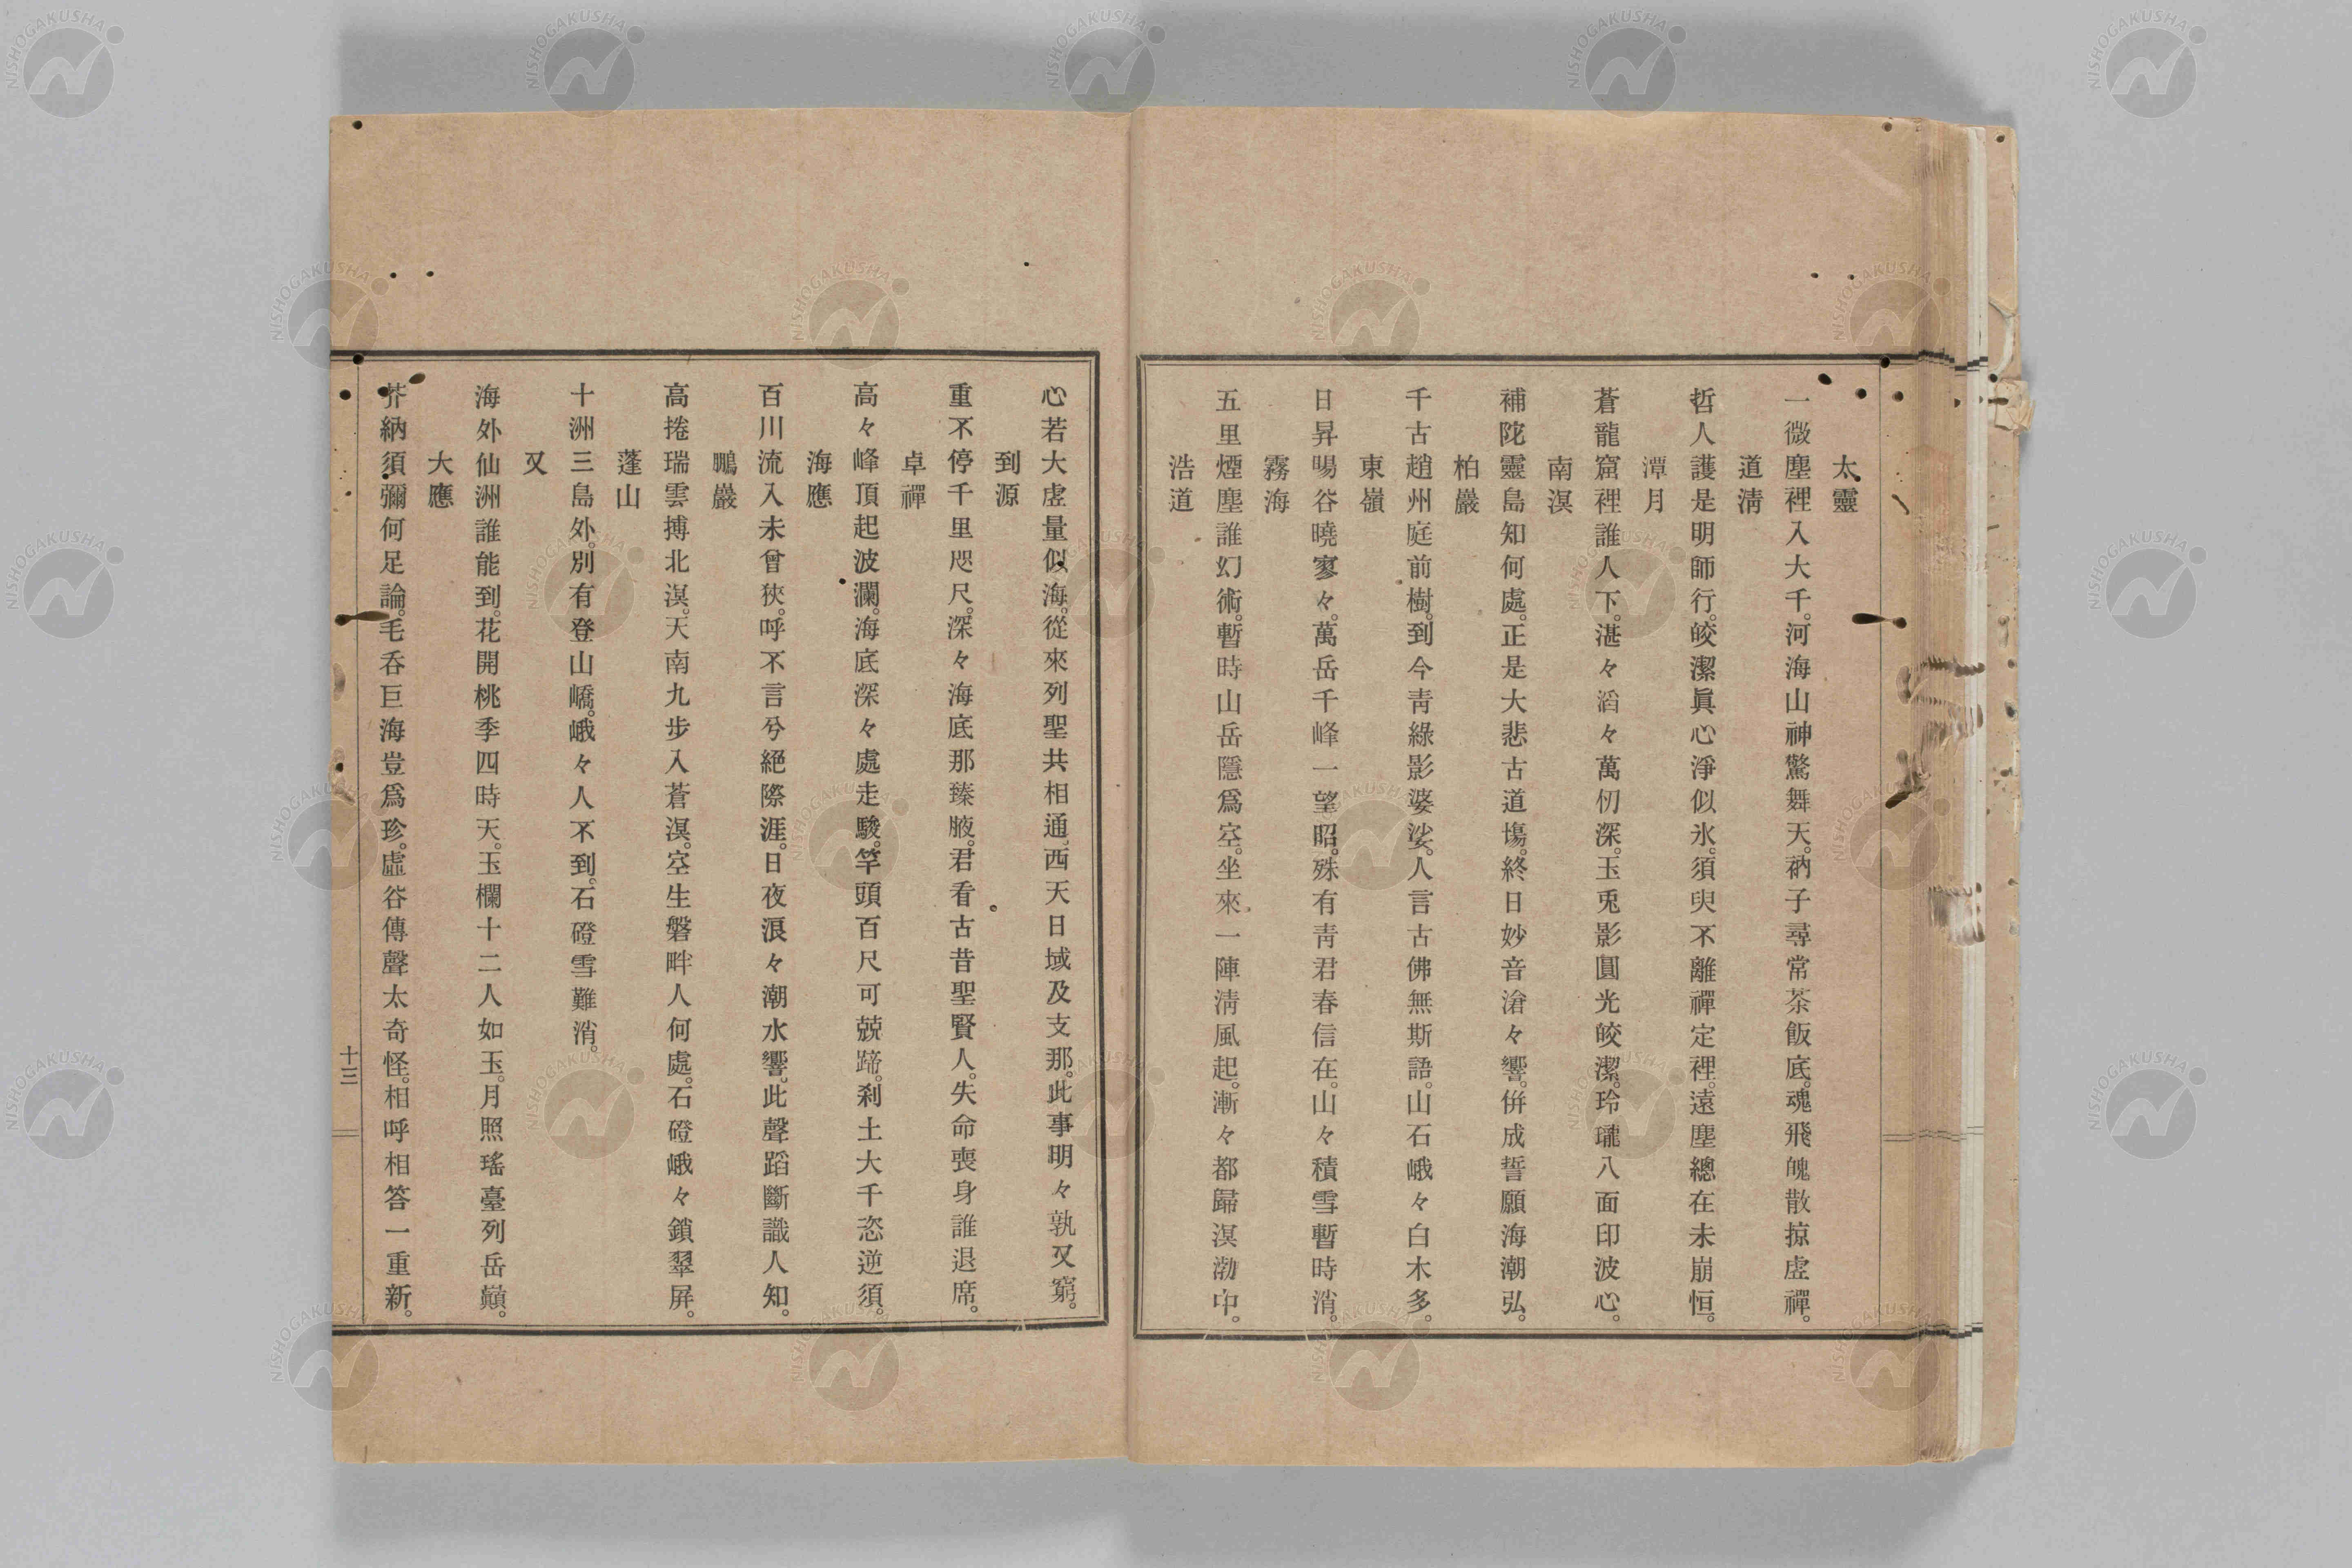 太靈
一微塵裡入大千。河海山神驚舞天。衲子尋常茶飯底。魂飛魄散掠虛禪。
道淸
哲人護是明師行。皎潔眞心淨似氷。須臾不離禪定裡。遠塵總在未崩恒。
潭月
蒼龍窟裡誰人下。湛々滔々萬仞深。玉兎影圓光皎潔。玲瓏八面印波心。
南溟
補陀靈島知何處。正是大悲古道場。終日妙音滄々響。併成誓願海潮弘。
柏巖
千古趙州庭前樹。到今靑綠影婆娑。人言古佛無斯語。山石峨々白木多。
東嶺
日昇暘谷曉寥々。萬岳千峰一望昭。殊有靑君春信在。山々積雪暫時消。
霧海
五里煙塵誰幻術。暫時山岳隱爲空。坐來一陣淸風起。漸々都歸溟渤中。
浩道
心若大虛量似海。從來列聖共相通。西天日域及支那。此事明々孰又窮。
到源
重不停千里咫尺。深々海底那臻腋。君看古昔聖賢人。失命喪身誰退席。
卓禪
高々峰頂起波瀾。海底深々處走駿。竿頭百尺可兢蹄。刹土大千恣逆須。
海應
百川流入未曾狹。呼不言兮絕際涯。日夜浪々潮水響。此聲蹈斷識人知。
鵬巖
高捲瑞雲搏北溟。天南九步入蒼溟。空生磐畔人何處。石磴峨々鎖翠屏。
蓬山
十洲三島外。別有登山嶠。峨々人不到。石磴雪難消。
又
海外仙洲誰能到。花開桃季四時天。玉欄十二人如玉。月照瑤臺列岳巓。
大應
芥納須彌何足論。毛呑巨海豈爲珍。虛谷傳聲太奇怪。相呼相答一重新。
十三
NISHOGAKUSHA